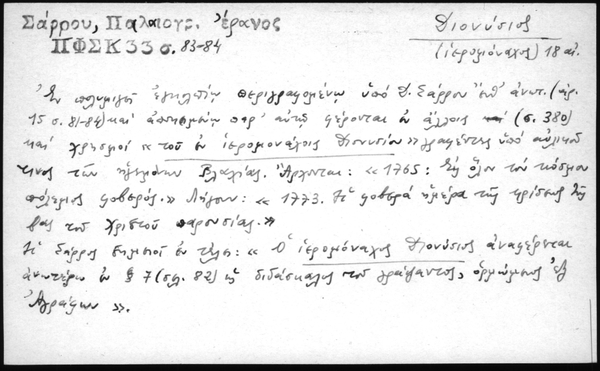 Σάρρου, Παλαιογρ. ἔρανος
ΠΦΣΚ 33 σ. 83-84
Διονύσιος
(ἱερομόναχος) 18 αἰ.
Ἐν πολυμιγεῖ ἐγκολπίῳ περιγραφομένῳ ὑπὸ Δ. Σάρρου ἔνθ' ἀνωτ. (ἀρ.
15 σ. 81-84) καὶ παρ' αὐτῆς φέρονται ἐν ἄλλοις (σ. 380)
καὶ χρησμοὶ «τοῦ ἐν ἱερομονάχοις Διονυσίου» γραφέντες ὑπὸ αὐλικοῦ
τινος τῶν ἡγεμόνων Βλαχίας. Ἄρχονται: «1765: Εἰς ὅλον τὸν κόσμον
πόλεμος φοβερός.» Λήγουν: «1773. Ἡ φοβερὰ ἡμέρα τῆς κρίσεως τῆς
βας τοῦ Χριστοῦ παρουσίας.»
Ὁ Σάρρος σημειοῖ ἐν τέλει: «Ὁ ἱερομόναχος Διονύσιος ἀναφέρεται
ἀνωτέρω ἐν § 7 (σελ. 82) ὡς διδάσκαλος τοῦ γράψαντος, ὁρμώμενος ἐξ
Ἀγράφων».